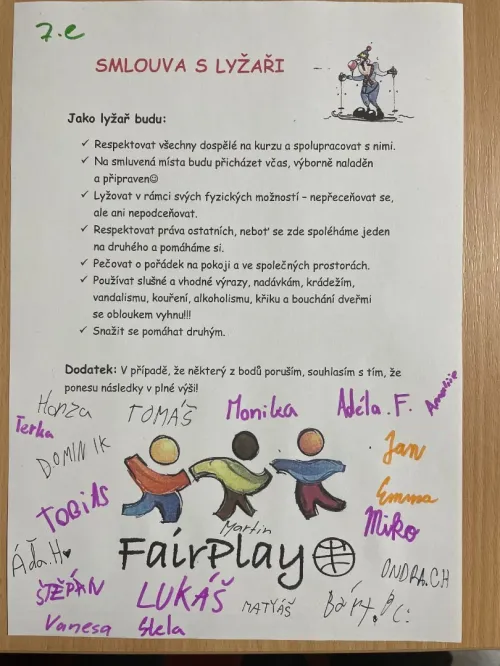 7.e
SMLOUVA S LYŽAŘI
Jako lyžař budu:
✓ Respektovat všechny dospělé na kurzu a spolupracovat s nimi.
✓ Na smluvená místa budu přicházet včas, výborně naladěn
a připraven☺
✓ Lyžovat v rámci svých fyzických možností – nepřeceňovat se,
ale ani nepodceňovat.
✓ Respektovat práva ostatních, neboť se zde spoléháme jeden
na druhého a pomáháme si.
✓ Pečovat o pořádek na pokoji a ve společných prostorách.
✓ Používat slušné a vhodné výrazy, nadávkám, krádežím,
vandalismu, kouření, alkoholismu, křiku a bouchání dveřmi
se obloukem vyhnu!!!
✓ Snažit se pomáhat druhým.
Dodatek: V případě, že některý z bodů poruším, souhlasím s tím, že
ponesu následky v plné výši!
Honza
TOMÁŠ
Monika
Adéla.F.
Terka
DOMINIK
Jan
Emma
TOBIÁS
Martin
Miko
FairPlay
Áďa.H♥
ONDRA.CH
ŠTĚPÁN
LUKÁŠ
MATYÁŠ
Vanesa
Stela